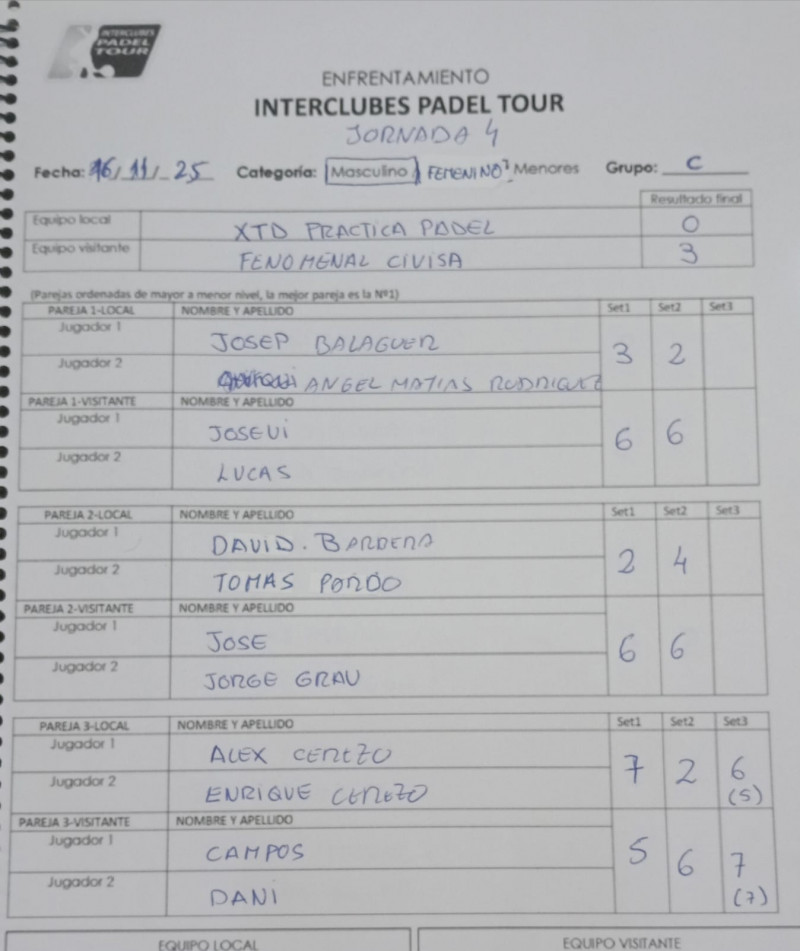 INTERCLUBES
PADEL
TOUR
ENFRENTAMIENTO
INTERCLUBES PADEL TOUR
JORNADA 4
Fecha: 16/11/25 Categoría: Masculino FEMENINO Menores Grupo: C
Resultado final
Equipo local XTD PRACTICA PADEL 0
Equipo visitante FENOMENAL CIVISA 3
(Parejas ordenadas de mayor a menor nivel, la mejor pareja es la Nº1)
PAREJA 1-LOCAL NOMBRE Y APELLIDO Set1 Set2 Set3
Jugador 1 JOSEP BALAGUER 3 2
Jugador 2 ANGEL MATIAS RODRIGUEZ
PAREJA 1-VISITANTE NOMBRE Y APELLIDO
Jugador 1 JOSEVI 6 6
Jugador 2 LUCAS
PAREJA 2-LOCAL NOMBRE Y APELLIDO Set1 Set2 Set3
Jugador 1 DAVID. BARDERA 2 4
Jugador 2 TOMAS PORDO
PAREJA 2-VISITANTE NOMBRE Y APELLIDO
Jugador 1 JOSE 6 6
Jugador 2 JORGE GRAU
PAREJA 3-LOCAL NOMBRE Y APELLIDO Set1 Set2 Set3
Jugador 1 ALEX CEREZO 7 2 6
Jugador 2 ENRIQUE CEREZO (5)
PAREJA 3-VISITANTE NOMBRE Y APELLIDO
Jugador 1 CAMPOS 5 6 7
Jugador 2 DANI (7)
EQUIPO LOCAL EQUIPO VISITANTE